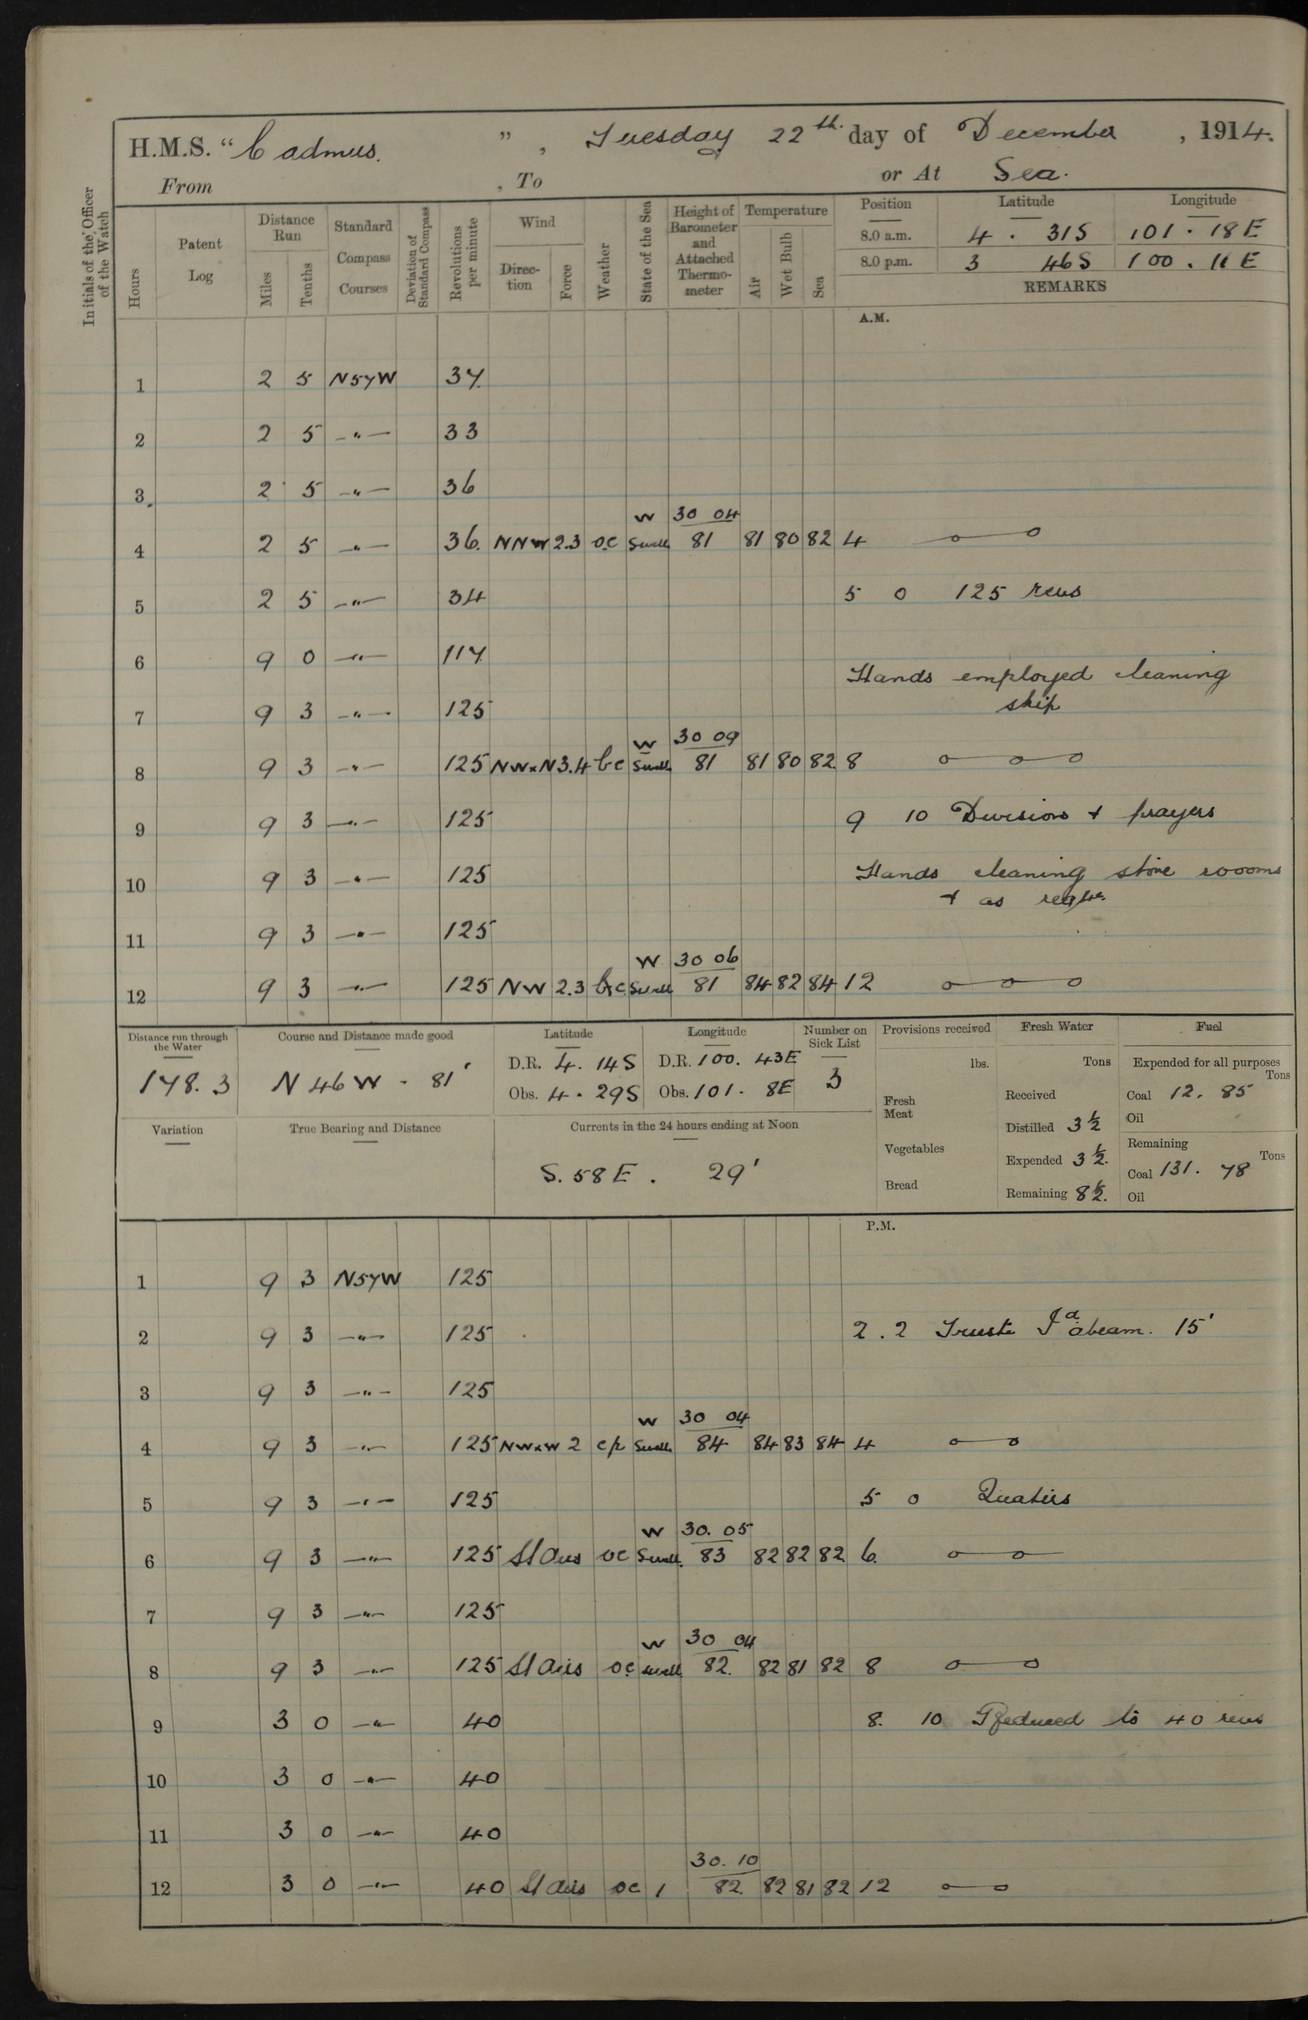 H.M.S. "Cadmus.", Tuesday 22th. day of December, 1914.
From , To or At Sea.
Initials of the Officer of the Watch
Hours
Patent Log
Distance Run
Miles
Tenths
Standard Compass Courses
Deviation of Standard Compass
Revolutions per minute
Wind
Direction
Force
Weather
State of the Sea
Height of Barometer and Attached Thermometer
Temperature
Air
Wet Bulb
Sea
Position Latitude Longitude
8.0 a.m. 4 . 31S 101 . 18 E
8.0 p.m. 3 46S 100 . 11 E
REMARKS
A.M.
1 2 5 N57W 37
2 2 5 —"— 33
3 2 5 —"— 36
W 30 04
4 2 5 —"— 36. NNW 2.3 o.c Swell 81 81 80 82 4
5 2 5 —"— 34 5 0 125 revs
6 9 0 —"— 117
Hands employed cleaning
7 9 3 —"— 125 ship
W 30 09
8 9 3 —"— 125 NWxN 3.4 bc Swell 81 81 80 82 8
9 9 3 —"— 125 9 10 Divisions + prayers
10 9 3 —"— 125 Hands cleaning store roooms
+ as reqte.
11 9 3 —"— 125
W 30 06
12 9 3 —"— 125 NW 2.3 bc Swell 81 84 82 84 12
Distance run through the Water
178.3
Course and Distance made good
N 46 W - 81'
Latitude
D.R. 4. 14S
Obs. 4 . 29S
Longitude
D.R. 100. 43E
Obs. 101. 8E
Number on Sick List
3
Provisions received
lbs.
Fresh Meat
Vegetables
Bread
Fresh Water
Tons
Received
Distilled 3½
Expended 3½.
Remaining 8½.
Fuel
Expended for all purposes
Tons
Coal 12. 85
Oil
Remaining
Tons
Coal 131. 78
Oil
Variation
True Bearing and Distance
Currents in the 24 hours ending at Noon
S. 58 E . 29'
P.M.
1 9 3 N57W 125
2 9 3 —"— 125 2 . 2 Trieste Id abeam. 15'
3 9 3 —"— 125
W 30 04
4 9 3 —"— 125 NWxW 2 cp Swell 84 84 83 84 4
5 9 3 —"— 125 5 0 Quarters
W 30. 05
6 9 3 —"— 125 Lt airs oc Swell. 83 82 82 82 6.
7 9 3 —"— 125
W 30 04
8 9 3 —"— 125 Lt airs oc swell 82. 82 81 82 8
9 3 0 —"— 40 8. 10 Reduced to 40 revs
10 3 0 —"— 40
11 3 0 —"— 40
30. 10
12 3 0 —"— 40 Lt airs oc 1 82 82 81 82 12